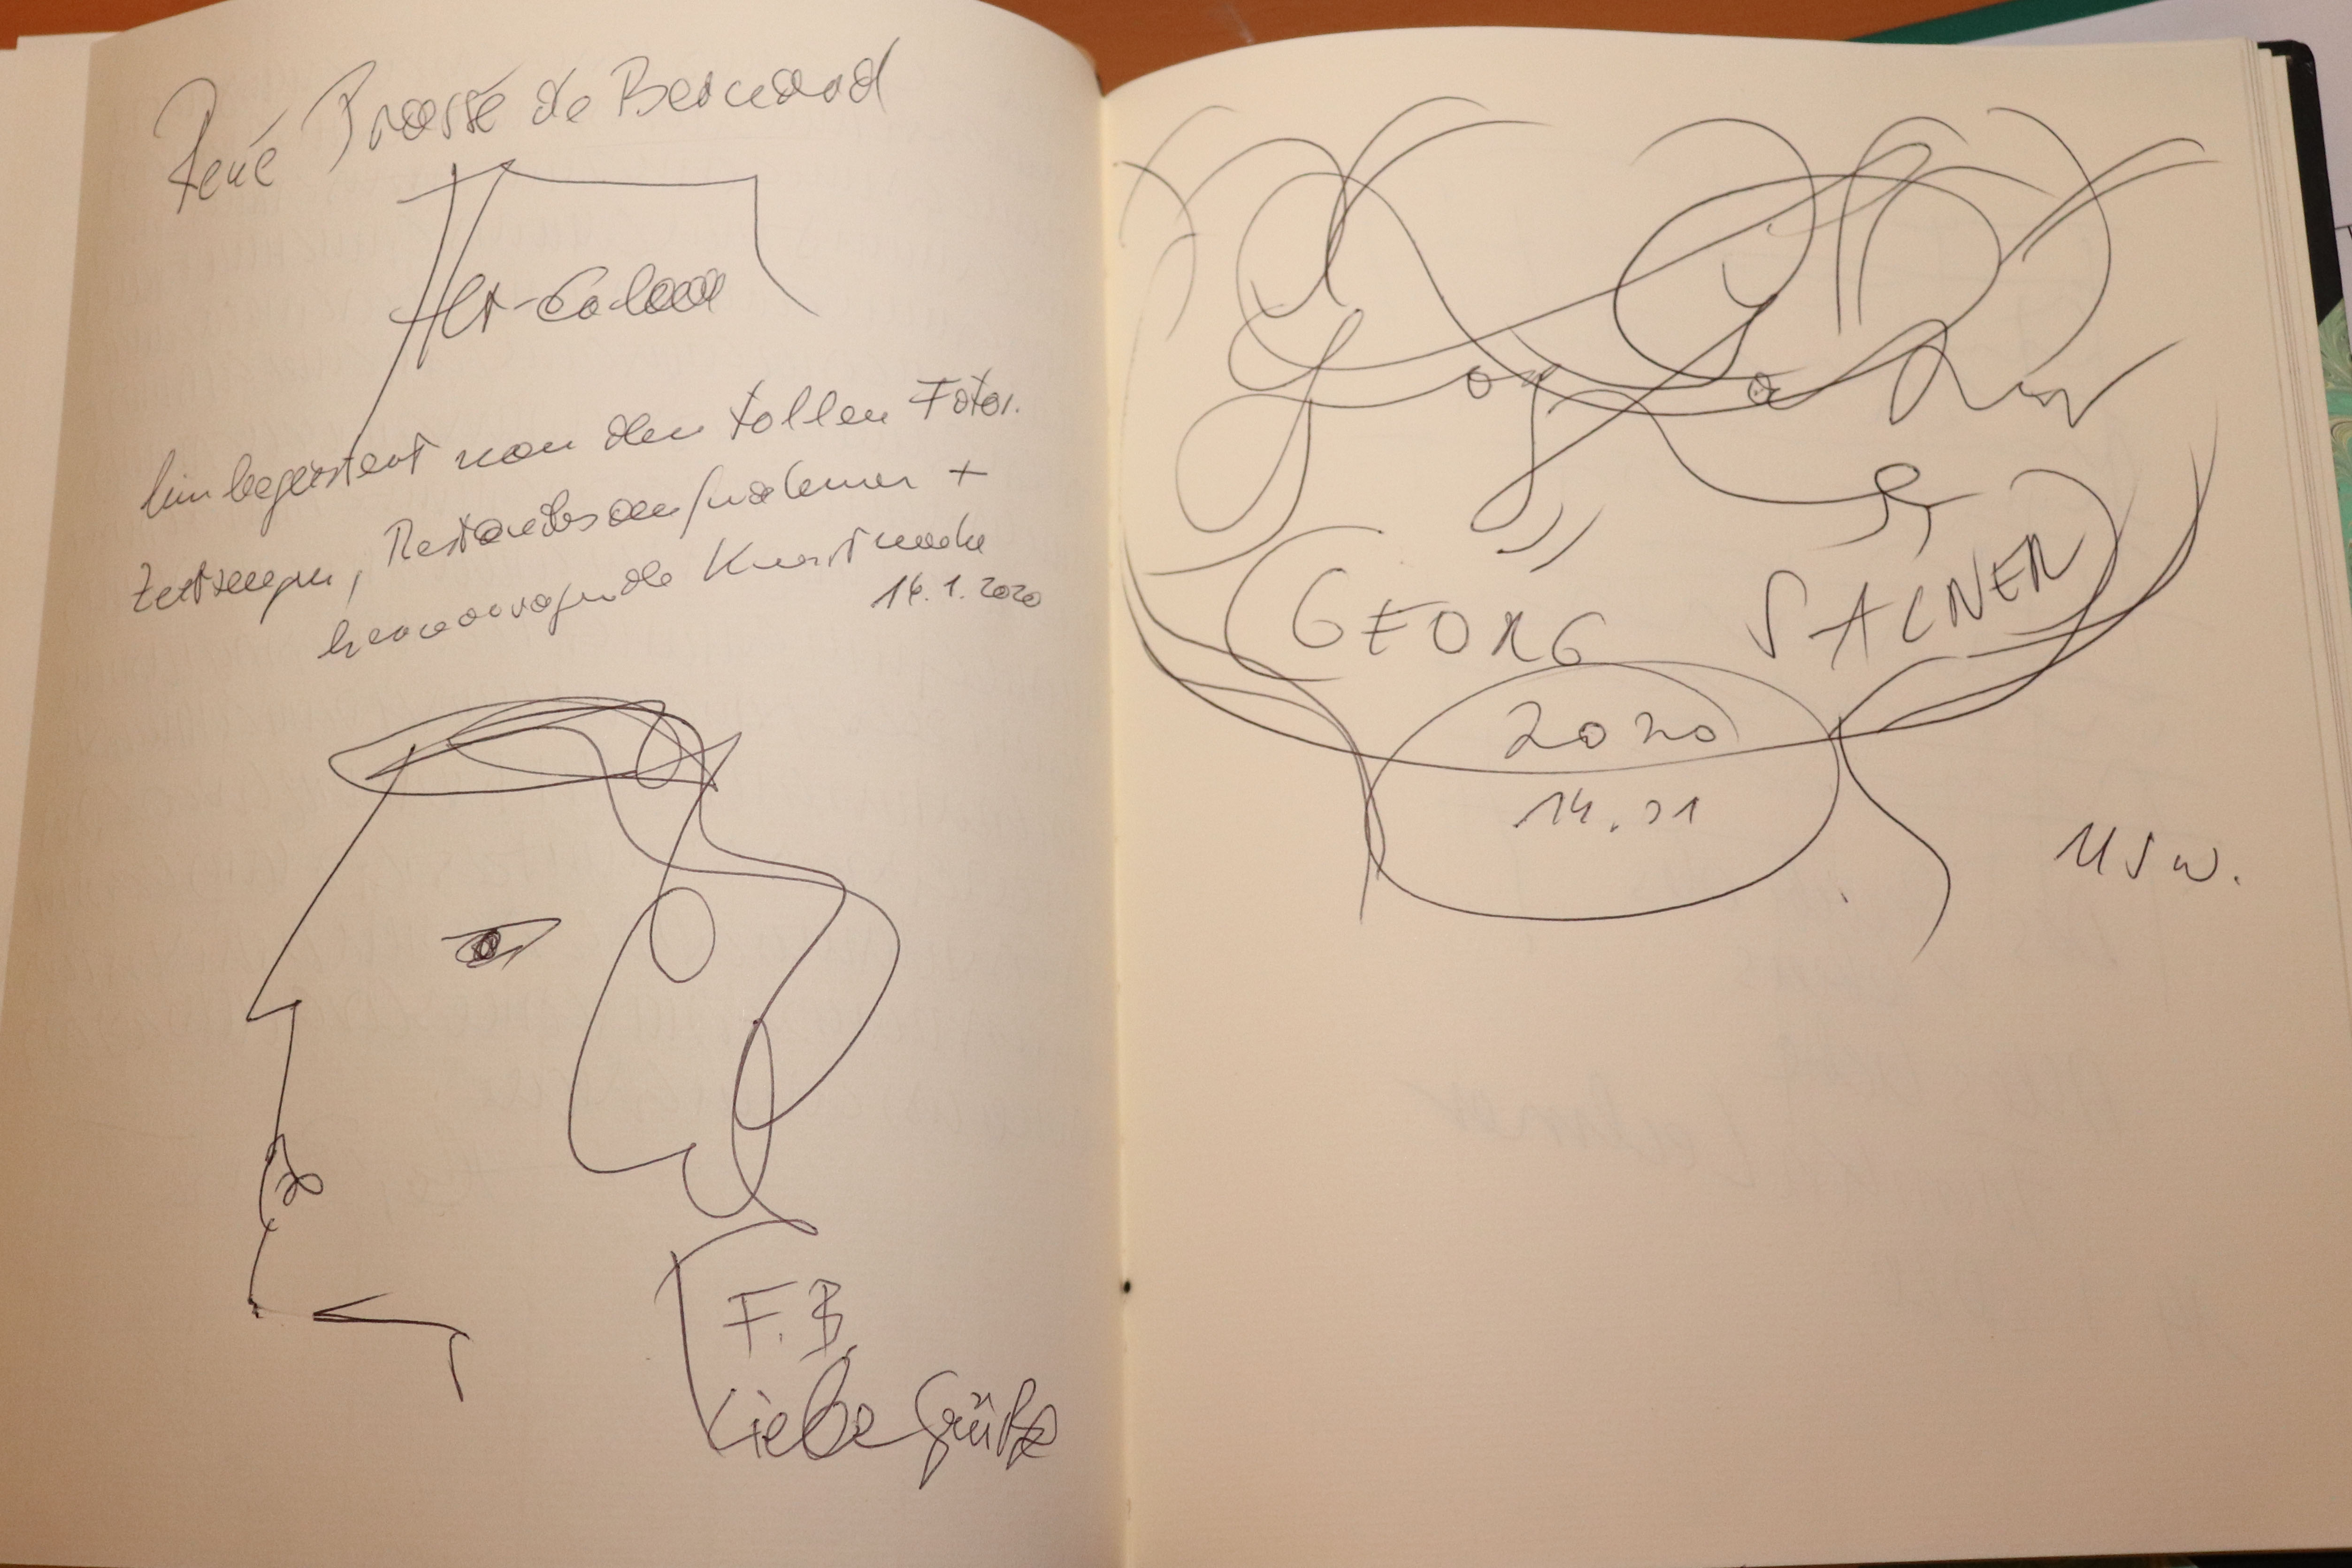 René Brassé de Bernard
bin begeistert von den tollen Fotos.
Zeitzeugen, Bestandsaufnahmen +
hervorragende Kunstwerke
14.1.2020
F.B.
Liebe Grüße
GEORG SALNER
2020
14.01
USW.